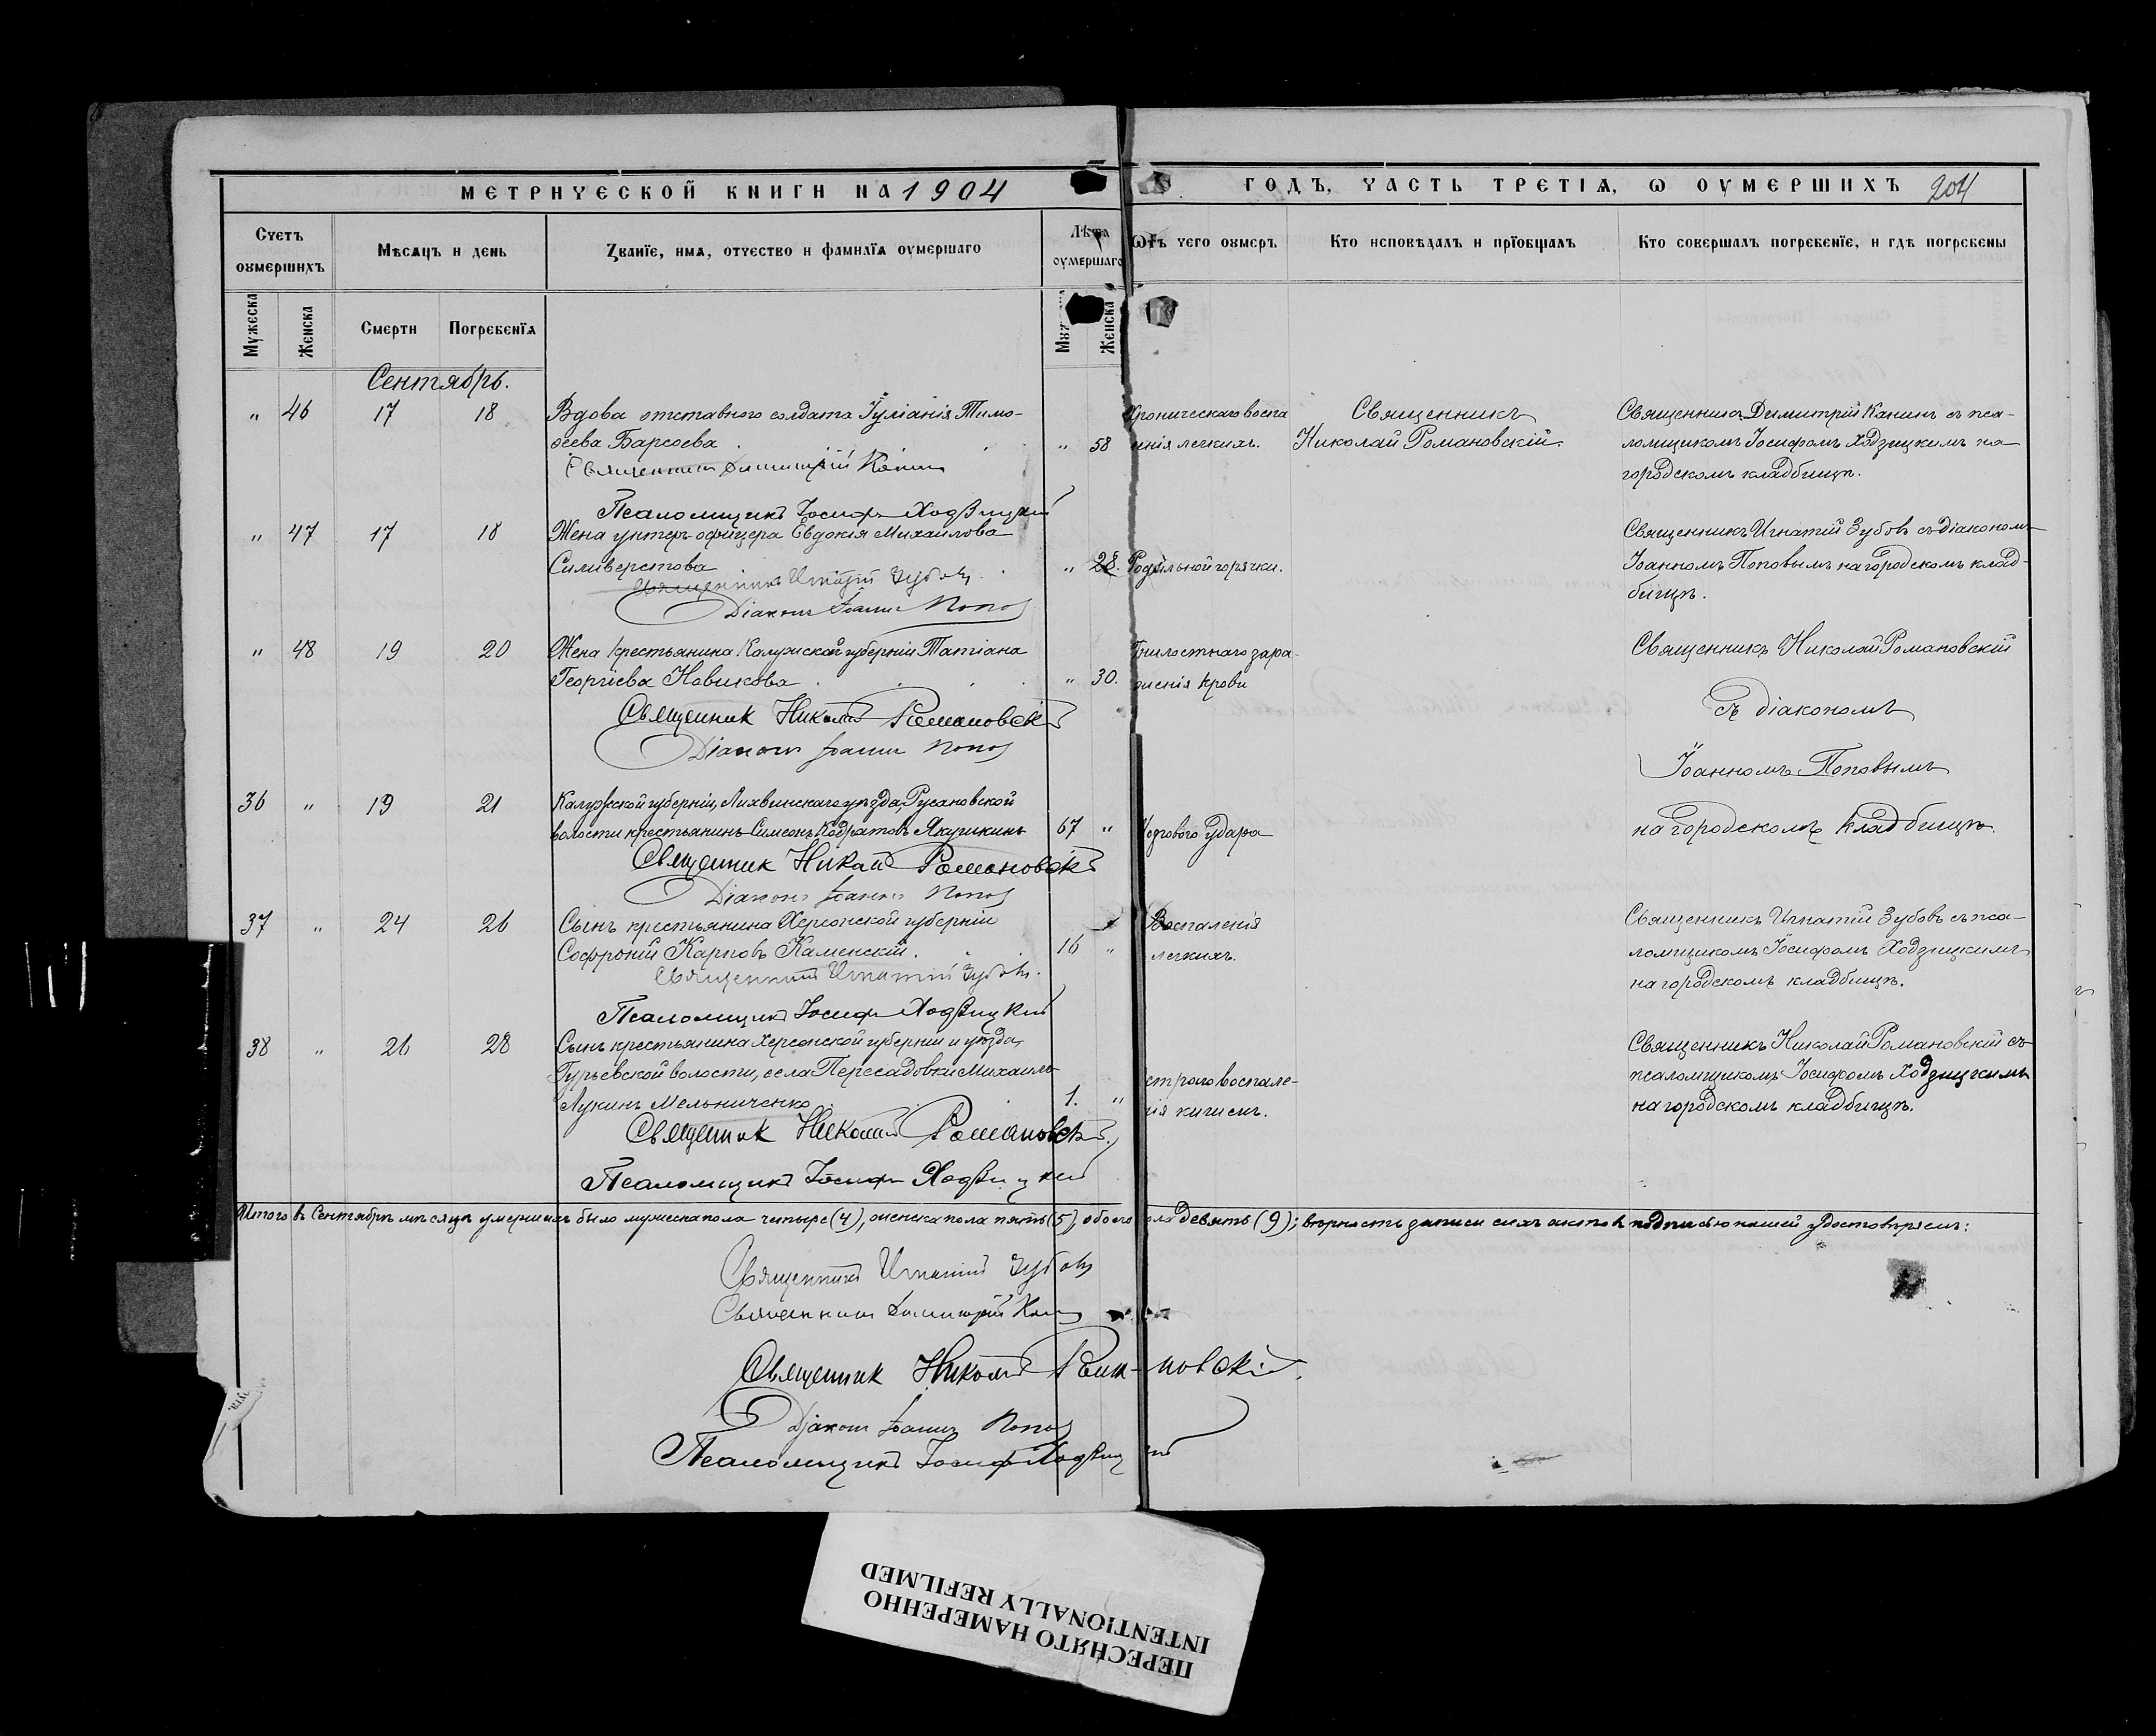 МЕТРИЧЕСКОЙ КНИГИ НА 1904 ГОДЪ, ЧАСТЬ ТРЕТІѦ, Ѡ ОУМЕРШИХЪ 204
Счетъ оумершихъ
Мѣсѧцъ и день
Званїе, имѧ, отчество и фамилїѧ оумершаго
Лѣта оумершаго
Ѿ чего оумеръ
Кто исповѣдалъ и прїобщалъ
Кто совершалъ погребенїе, и гдѣ погребены
Мужеска
Женска
Смерти
Погребенїѧ
Женска
Сентябрь.
„ 46 17 18
Вдова отставного солдата Іуліанія Тимо-
ѳеева Барсоева „ 58
Хроническаго воспа
енія легкихъ.
Священникъ
Николай Романовскій.
Священникъ Димитрій Канинъ съ пса-
ломщикомъ Іосифомъ Ходзицкимъ на
городскомъ кладбищѣ.
Священникъ Димитрій Канинъ
Псаломщикъ Іосифъ Ходзицкій
„ 47 17 18
Жена унтеръ офицера Евдокія Михайлова
Силиверстова „ 28.
Родильной горячки.
Священникъ Игнатій Зубовъ съ діакономъ
Іоанномъ Поповымъ на городскомъ клад-
бищѣ.
Священникъ Игнатій Зубовъ.
Діаконъ Іоаннъ Поповъ
„ 48 19 20
Жена крестьянина Калужской губерніи Татіана
Георгіева Новикова „ 30.
Гнилостнаго зара-
женія крови
Священникъ Николай Романовскій
съ діакономъ
Іоанномъ Поповымъ
на городскомъ кладбищѣ.
Священник Николай Романовскій
Діаконъ Іоаннъ Поповъ
36 „ 19 21
Калужской губерніи, Лихвинскаго уѣзда, Русановской
волости крестьянинъ Симеонъ Кодратовъ Якушкинъ 67 „
Мозгового удара
Священник Николай Романовскій
Діаконъ Іоаннъ Поповъ
37 „ 24 26
Сынъ крестьянина Херсонской губерніи
Софроній Карповъ Каменскій. 16 „
Воспаленія
легкихъ.
Священникъ Игнатій Зубовъ съ пса-
ломщикомъ Іосифомъ Ходзицкимъ
на городскомъ кладбищѣ.
Священникъ Игнатій Зубовъ.
Псаломщикъ Іосифъ Ходзицкій
38 „ 26 28
Сынъ крестьянина Херсонской губерніи и уѣзда,
Гурьевской волости, села Пересадовки Михаилъ
Лукинъ Мельниченко 1. „
строго воспале-
нія кишекъ.
Священникъ Николай Романовскій съ
псаломщикомъ Іосифомъ Ходзицкимъ
на городскомъ кладбищѣ.
Священник Николай Романовскій.
Псаломщикъ Іосифъ Ходзицкій
Итого въ Сентябрѣ мѣсяцѣ умершихъ было мужеска пола четыре (4), женска пола пять (5), обоего пола девять (9); вѣрность записи сихъ актовъ подписью нашей удостовѣряемъ:
Священникъ Игнатій Зубовъ
Священникъ Димитрій Канинъ
Священник Николай Романовскій.
Діаконъ Іоаннъ Поповъ
Псаломщикъ Іосифъ Ходзицкій
ПЕРЕСНЯТО НАМЕРЕННО
INTENTIONALLY REFILMED